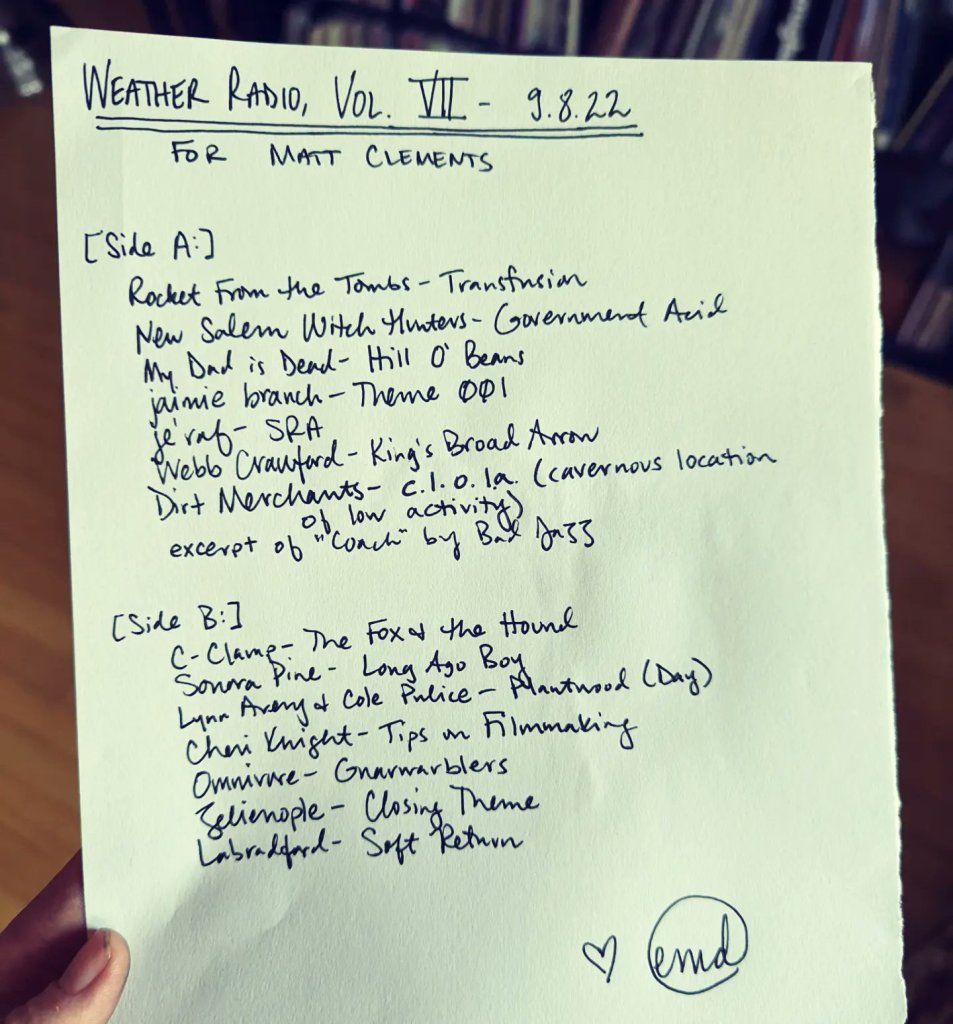 WEATHER RADIO, VOL. VII - 9.8.22
FOR MATT CLEMENTS
[Side A:]
Rocket From the Tombs - Transfusion
New Salem Witch Hunters - Government Acid
My Dad is Dead - Hill O' Beans
jaimie branch - Theme 001
je'raf - SRA
Webb Crawford - King's Broad Arrow
Dirt Merchants - c.l.o.l.a. (cavernous location
of low activity)
excerpt of "Coach" by Bad Jazz
[Side B:]
C-Clamp - The Fox & the Hound
Sonora Pine - Long Ago Boy
Lynn Avery & Cole Pulice - Plantwood (Day)
Cheri Knight - Tips on Filmmaking
Omnivore - Gnarwarblers
Zelienople - Closing Theme
Labradford - Soft Return
♡ emd